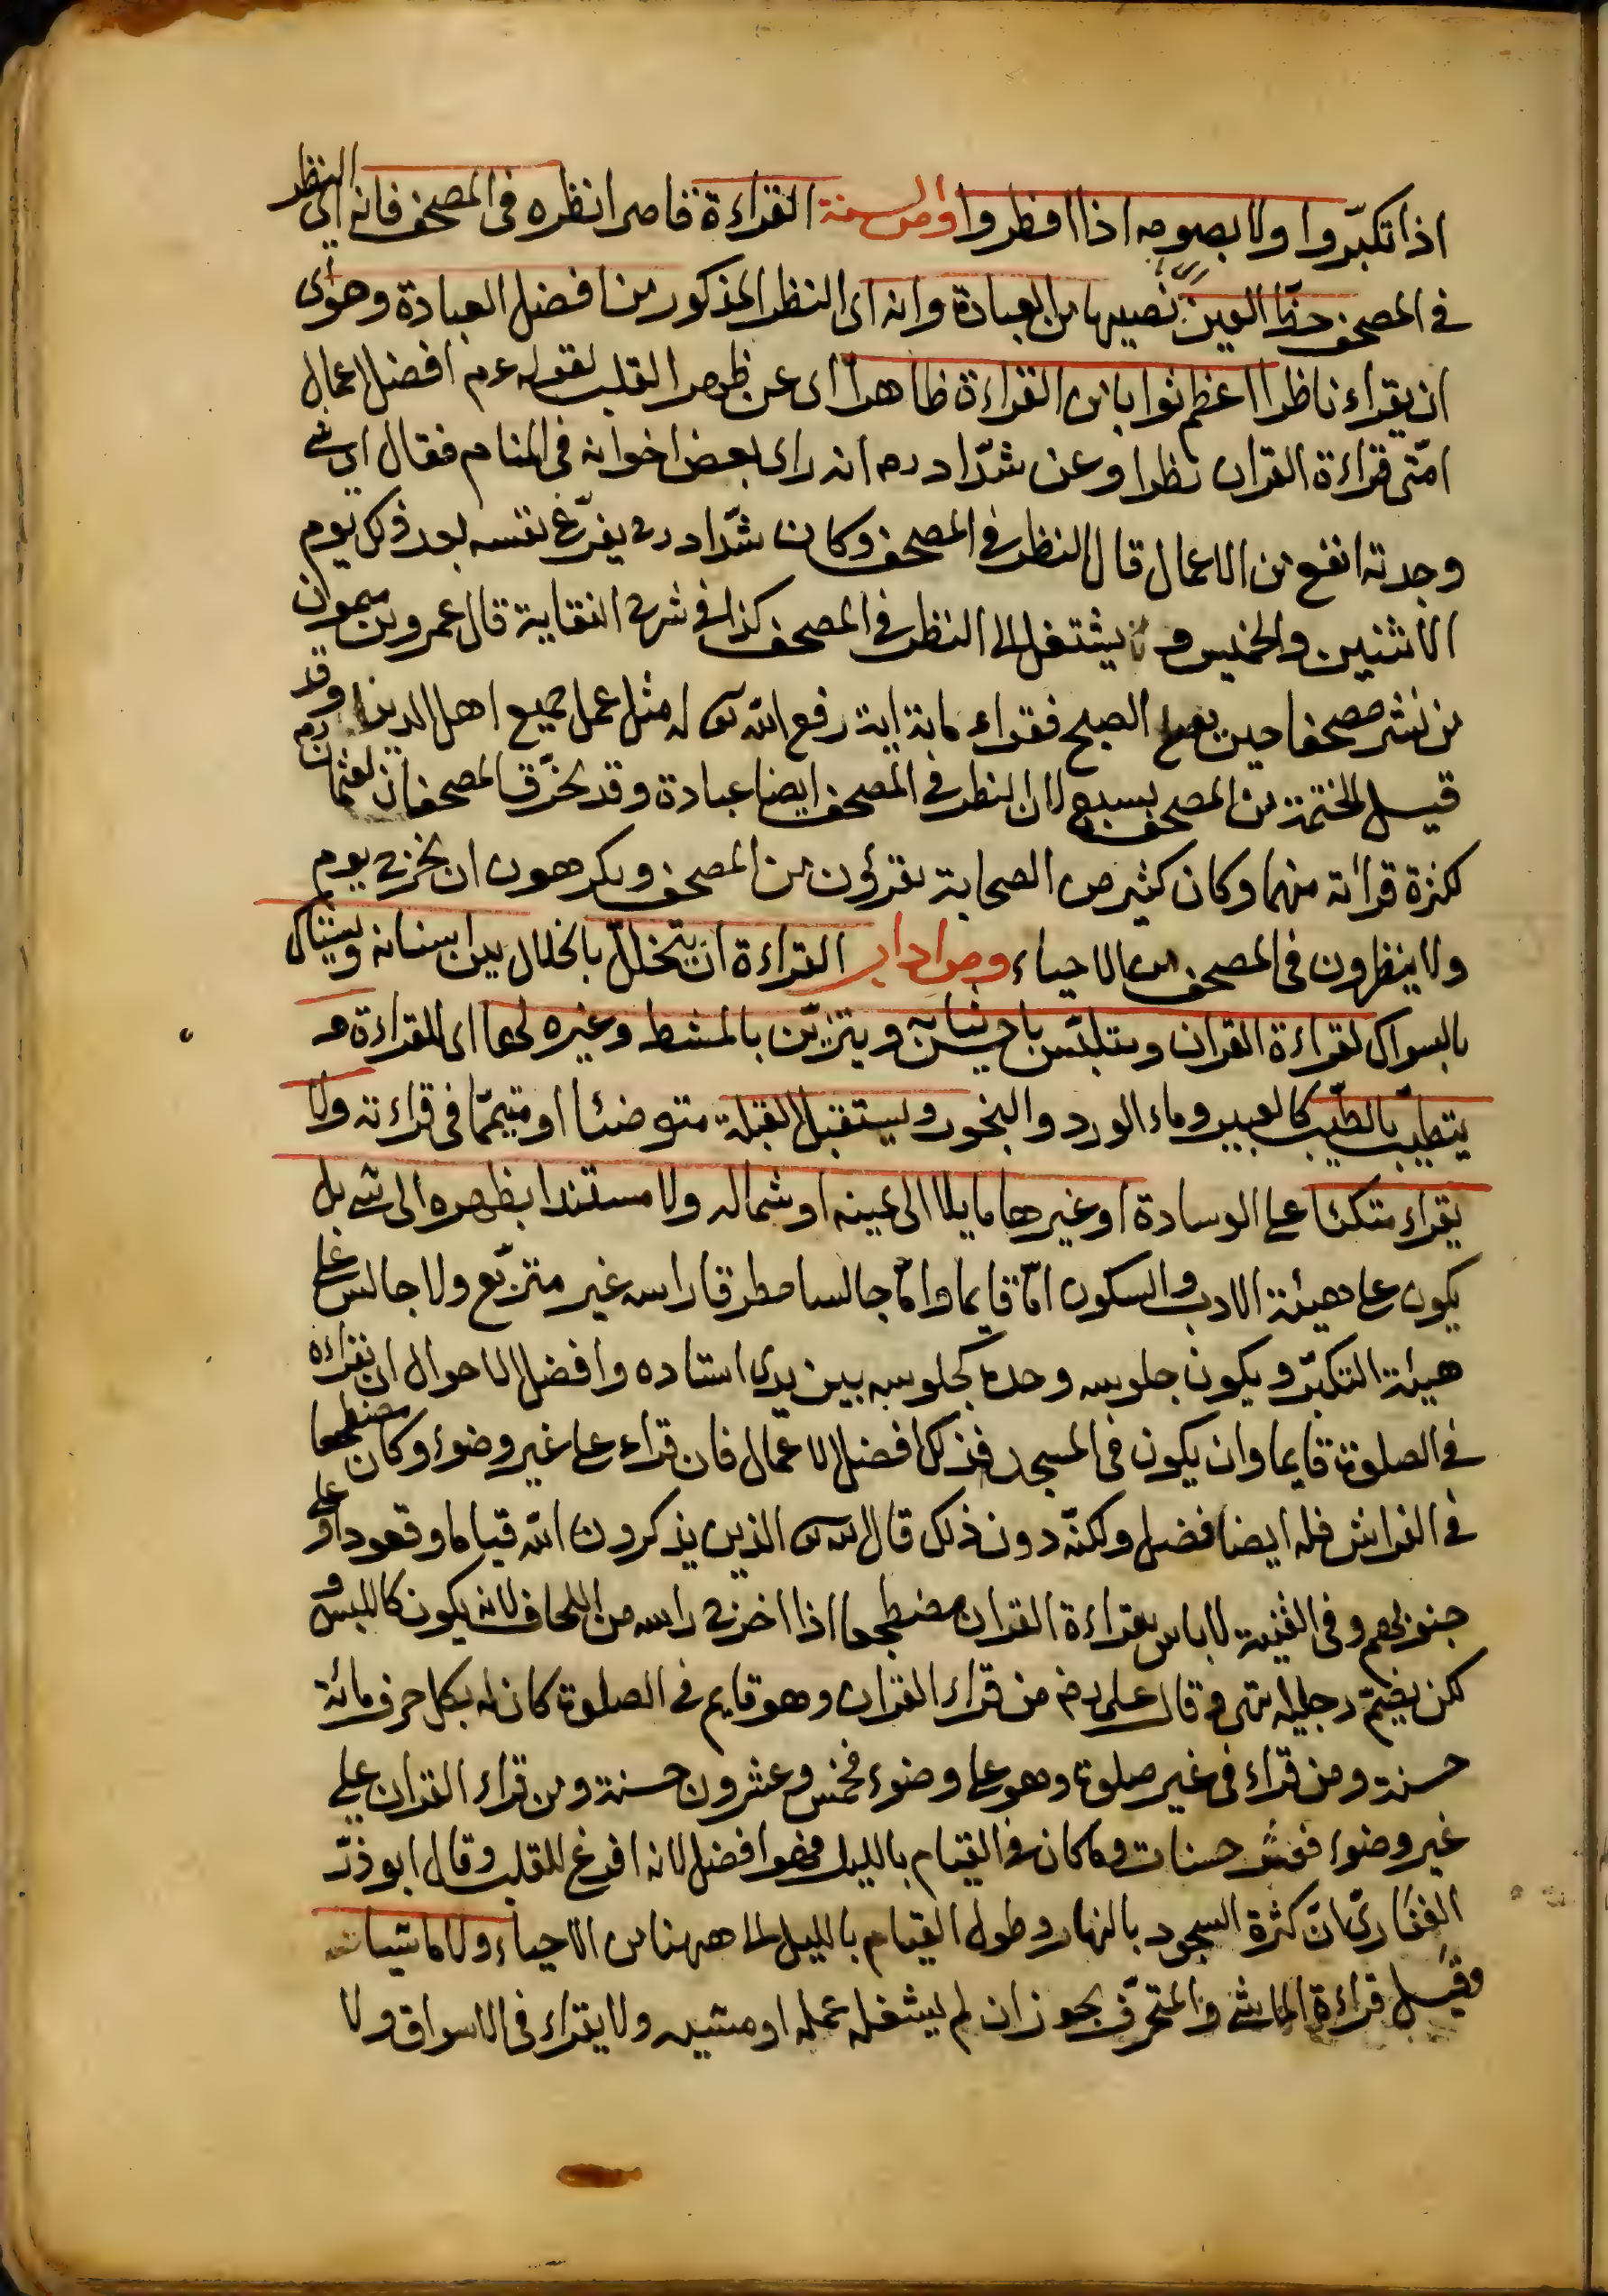 اذا تكبّروا ولا بصومه اذا افطروا ومن السنة القراءة قاصرا نظره فى المصحف فانه اى النظر
فى المصحف حظّ العين اى نصيبها من العبادة وانه اى النظر المذكور من افضل العبادة وهو اى
ان يقراء ناظرا اعظم ثوابا من القراءة ظاهرا اى عن ظهر القلب لقوله عم افضل اعمال
امّتى قراءة القران نظرا وعن شدّاد رح انه راى بعض اخوانه فى المنام فقال اى شئ
وجدته انفع من الاعمال قال النظر فى المصحف وكان شدّاد رح يفرّغ نفسه بعد ذلك يوم
الاثنين والخميس و يشتغل الى النظر فى المصحف كذا فى شرح النقاية قال عمرو بن ميمون
من نشر مصحفا حين يصلى الصبح فقراء مائة اية رفع الله تع له مثل عمل جميع اهل الدنيا وقد
قيل الختمة من المصحف بسبع لان النظر فى المصحف ايضا عبادة وقد تخرّق المصحفان لعثمان رض
لكثرة قرائته منهما وكان كثير من الصحابة يقرؤن من المصحف ويكرهون ان يخرج يوم
ولا ينظرون فى المصحف من الاحياء ومن اداب القراءة ان يتخلّل بالخلال بين اسنانه ويستاك
بالسواك لقراءة القران ويتلبّس باحسن ثيابه ويتزيّن بالمشط وغيره لها اى للقراءة و
يتطيّب بالطّيب كالعبير وماء الورد والبخور ويستقبل القبلة متوضئا او متيمّما فى قراءته ولا
يقراء متكئا على الوسادة او غيرها مايلا الى يمينه او شماله ولا مستندا بظهره الى شئ بل
يكون على هيئة الادب والسكون امّا قايما وامّا جالسا مطرقا راسه غير متربّع ولا جالس على
هيئة التكبّر ويكون جلوسه وحده كجلوسه بين يدى استاده وافضل الاحوال ان يقراءه
فى الصلوة قايما وان يكون فى المسجد فذلك افضل الاعمال فان قراء على غير وضوء وكان مضطجعا
فى الفراش فله ايضا فضل ولكنّه دون ذلك قال الله تع الذين يذكرون الله قياما وقعودا وعلى
جنوبهم وفى القنية لا باس بقراءة القران مضطجعا اذا اخرج راسه من اللحاف لانه يكون كاللبس و
لكن يضمّ رجليه انتهى وقال على رض من قراء القران وهو قايم فى الصلوة كان له بكل حرف مائة
حسنة ومن قراء فى غير صلوة وهو على وضوء فخمس وعشرون حسنة ومن قراء القران على
غير وضوء فعشر حسنات وما كان من القيام بالليل فهو افضل لانه افرغ للقلب وقال ابو ذرّ
الغفارىّ انّ كثرة السجود بالنهار وطول القيام بالليل الى ههنا من الاحياء ولا ماشيا
وقيل قراءة الماشى والمتحرّف يجوز ان لم يشغله عمله او مشيه ولا يقراء فى الاسواق ولا